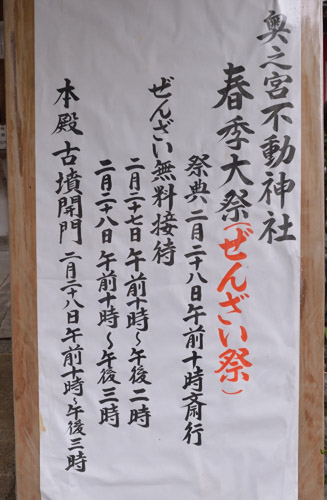 奥之宮不動神社
春季大祭(ぜんざい祭)
祭典 二月二十八日午前十時斎行
ぜんざい無料接待
二月二十七日 午前十時～午後二時
二月二十八日 午前十時～午後三時
本殿 古墳開門 二月二十八日午前十時～午後三時